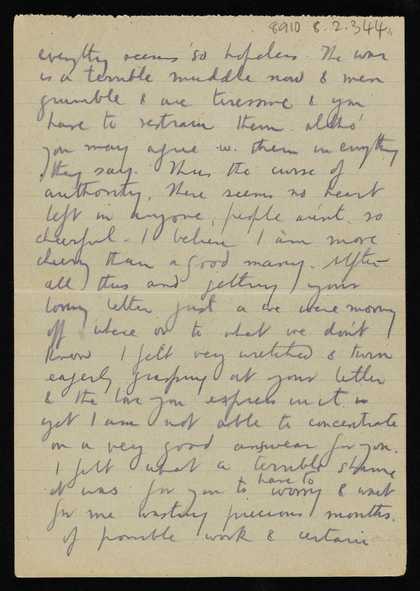 8910 8.2.344
everythg seems so hopeless. The war
is a terrible muddle now & men
grumble & are tiresome & you
have to restrain them altho'
you may agree w. them in everything
they say. Thus the curse of
authority. There seems no heart
left in anyone, people aren't so
cheerful - I believe I am more
cheery than a good many. After
all this and getting your
loving letter just as we were moving
off where or to what we don't
know I felt very wretched & turn
eagerly grasping at your letter
& the love you express in it
yet I am not able to concentrate
on a very good answear for you.
I felt what a terrible shame
it was for you to have to worry & wait
for me wasting precious months.
of possible work & certain